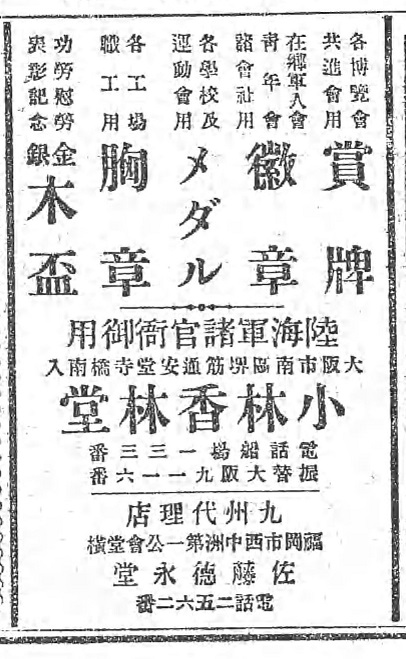 各博覽會
共進會用
賞牌
在鄉軍人會
青年會
諸會社用
徽章
各學校及
運動會用
メダル
各工場
職工用
胸章
功勞慰勞
表彰記念
金銀木盃
陸海軍諸官衙御用
大阪市南區堺筋通安堂寺橋南入
小林香林堂
電話船場一三三番
振替大阪九一一六番
九州代理店
福岡市西中洲第一公會堂橫
佐藤德永堂
電話二五六二番